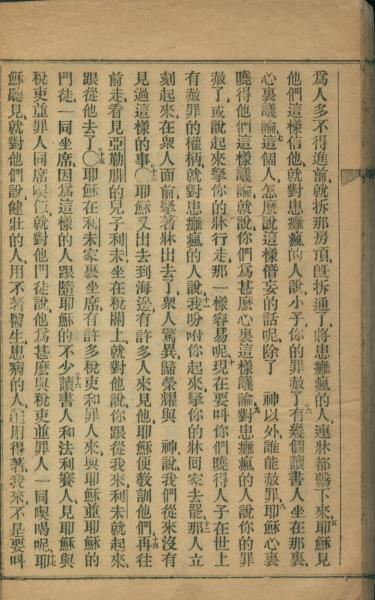 爲人多不得進前就拆那房頂旣拆通了將患癱瘋的人連牀都墜下來耶穌見
他們這樣信他就對患癱瘋的人說小子你的罪赦了有幾個讀書人坐在那裏
心裏議論這個人怎麼說這樣僭妄的話呢除了 神以外誰能赦罪耶穌心裏
曉得他們這樣議論就說你們爲甚麼心裏這樣議論對患癱瘋的人說你的罪
赦了或說起來拏你的牀行走那一樣容易呢現在要叫你們曉得人子在世上
有赦罪的權柄就對患癱瘋的人說我吩咐你起來拏你的牀回家去罷那人立
刻起來在衆人面前拏著牀出去了衆人驚異歸榮耀與 神說我們從來沒有
見過這樣的事〇耶穌又出去到海邊有許多人來見他耶穌便敎訓他們再往
前走看見亞勒腓的兒子利未坐在稅關上就對他說你跟從我來利未就起來
跟從他去了〇耶穌在利未家裏坐席有許多稅吏和罪人來與耶穌並耶穌的
門徒一同坐席因爲這樣的人跟隨耶穌的不少讀書人和法利賽人見耶穌與
稅吏並罪人同席喫飯就對他門徒說他爲甚麼與稅吏並罪人一同喫喝呢耶
穌聽見就對他們說健壯的人用不著醫生患病的人纔用得著我來不是要叫